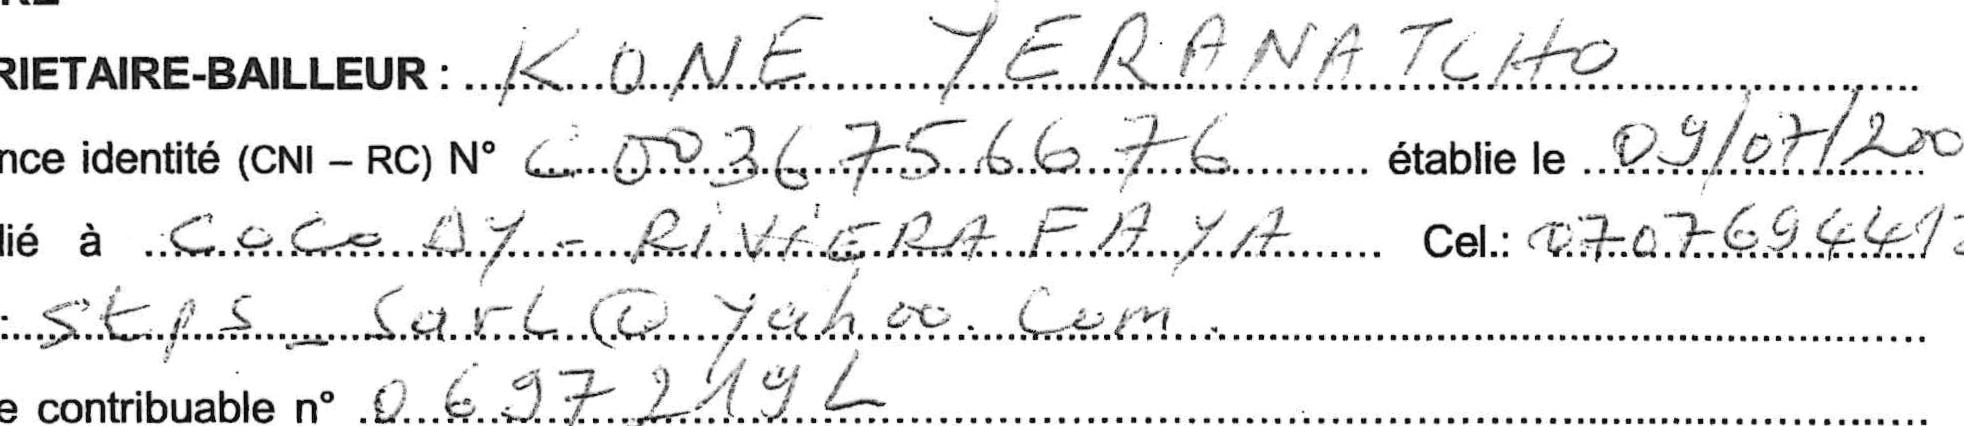 RIETAIRE-BAILLEUR : KONE YERANATCHO
nce identité (CNI – RC) N° C0036756676 établie le 09/07/200
lié à COCODY - RIVIERA FAYA Cel.: 070769441
: stps_sarl@yahoo.com.
e contribuable n° 0697219L